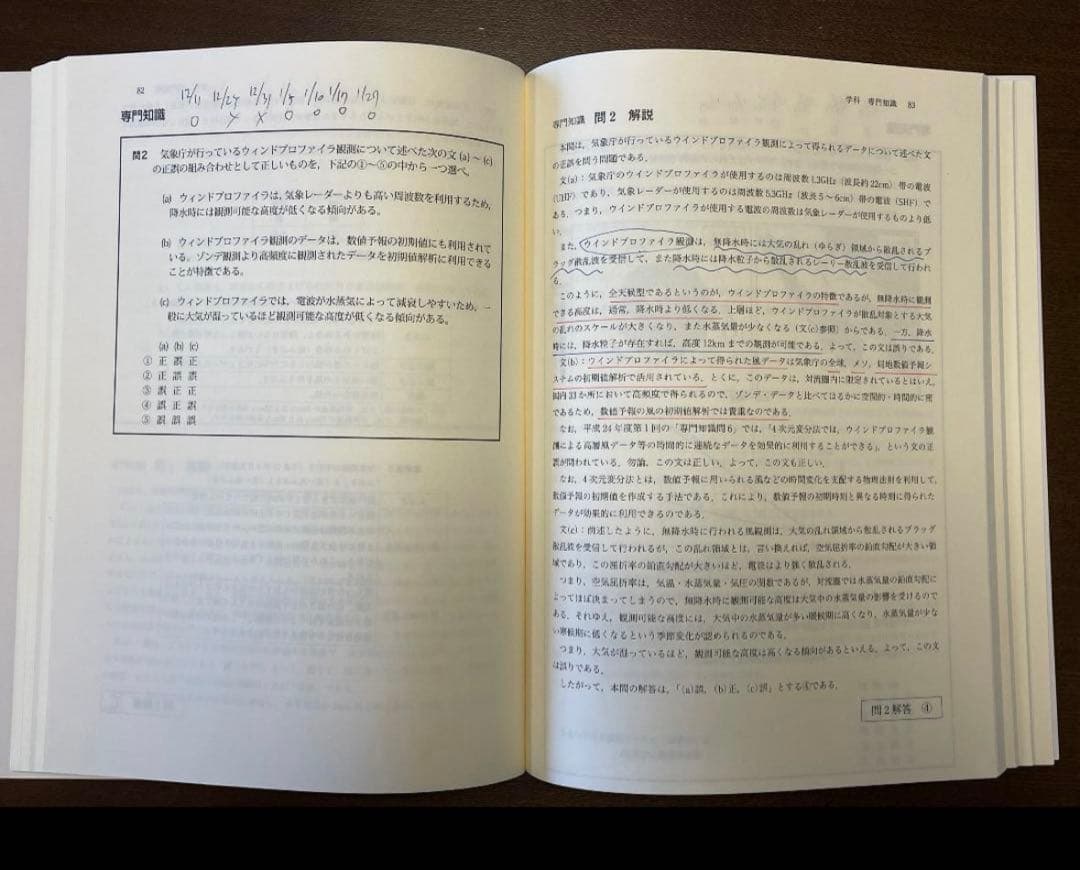 82
12/11 12/24 12/31 1/5 1/10 1/17 1/29
専門知識 ○ × × ○ ○ ○ ○
問2 気象庁が行っているウィンドプロファイラ観測について述べた次の文 (a)~(c)
の正誤の組み合わせとして正しいものを，下記の①~⑤の中から一つ選べ。
(a) ウィンドプロファイラは，気象レーダーよりも高い周波数を利用するため，
降水時には観測可能な高度が低くなる傾向がある。
(b) ウィンドプロファイラ観測のデータは，数値予報の初期値にも利用されて
いる。ゾンデ観測より高頻度に観測されたデータを初期値解析に利用できる
ことが特徴である。
(c) ウィンドプロファイラでは，電波が水蒸気によって減衰しやすいため，一
般に大気が湿っているほど観測可能な高度が低くなる傾向がある。
(a) (b) (c)
① 正 誤 正
② 正 誤 誤
③ 誤 正 正
④ 誤 正 誤
⑤ 誤 誤 誤
学科 専門知識 83
専門知識 問2 解説
本問は，気象庁が行っているウィンドプロファイラ観測によって得られるデータについて述べた文
の正誤を問う問題である。
文(a)：気象庁のウィンドプロファイラが使用するのは周波数1.3GHz（波長約22cm）帯の電波
(UHF)であり，気象レーダーが使用するのは周波数5.3GHz（波長5~6cm）帯の電波（SHF）で
ある。つまり，ウインドプロファイラが使用する電波の周波数は気象レーダーが使用するものより低
い。
また，ウインドプロファイラ観測は，無降水時には大気の乱れ（ゆらぎ）領域から散乱されるブ
ラッグ散乱波を受信して，また降水時には降水粒子から散乱されるレーリー散乱波を受信して行われ
る。
このように，全天候型であるというのが，ウインドプロファイラの特徴であるが，無降水時に観測
できる高度は，通常，降水時より低くなる。上層ほど，ウインドプロファイラが散乱対象とする大気
の乱れのスケールが大きくなり，また水蒸気量が少なくなる（文(c)参照）からである。一方，降水
時には，降水粒子が存在すれば，高度12kmまでの観測が可能である。よって，この文は誤りである。
文(b)：ウインドプロファイラによって得られた風データは気象庁の全球，メソ，局地数値予報シ
ステムの初期値解析で活用されている。とくに，このデータは，対流圏内に限定されているとはいえ，
国内33か所において高頻度で得られるので，ゾンデ・データと比べてはるかに空間的・時間的に密
であるため，数値予報の風の初期値解析では貴重なのである。
なお，平成24年度第1回の「専門知識問6」では，「4次元変分法では，ウインドプロファイラ観
測による高層風データ等の時間的に連続なデータを効果的に利用することができる」，という文の正
誤が問われている。勿論，この文は正しい。よって，この文も正しい。
なお，4次元変分法とは，数値予報に用いられる風などの時間変化を支配する物理法則を利用して，
数値予報の初期値を作成する手法である。これにより，数値予報の初期時刻と異なる時刻に得られた
データが効果的に利用できるのである。
文(c)：前述したように，無降水時に行われる風観測は，大気の乱れ領域から散乱されるブラッグ
散乱波を受信して行われるが，この乱れ領域とは，言い換えれば，空気屈折率の鉛直勾配が大きい領
域であり，この屈折率の鉛直勾配が大きいほど，電波はより強く散乱される。
つまり，空気屈折率は，気温・水蒸気量・気圧の関数であるが，対流圏では水蒸気量の鉛直勾配に
よってほぼ決まってしまうので，無降水時に観測可能な高度は大気中の水蒸気量の影響を受けるので
ある。それゆえ，観測可能な高度には，大気中の水蒸気量が多い暖候期に高くなり，水蒸気量が少な
い寒候期に低くなるという季節変化が認められるのである。
つまり，大気が湿っているほど，観測可能な高度は高くなる傾向があるといえる。よって，この文
は誤りである。
したがって，本問の解答は，「(a)誤，(b)正，(c)誤」とする④である。
問2解答 ④